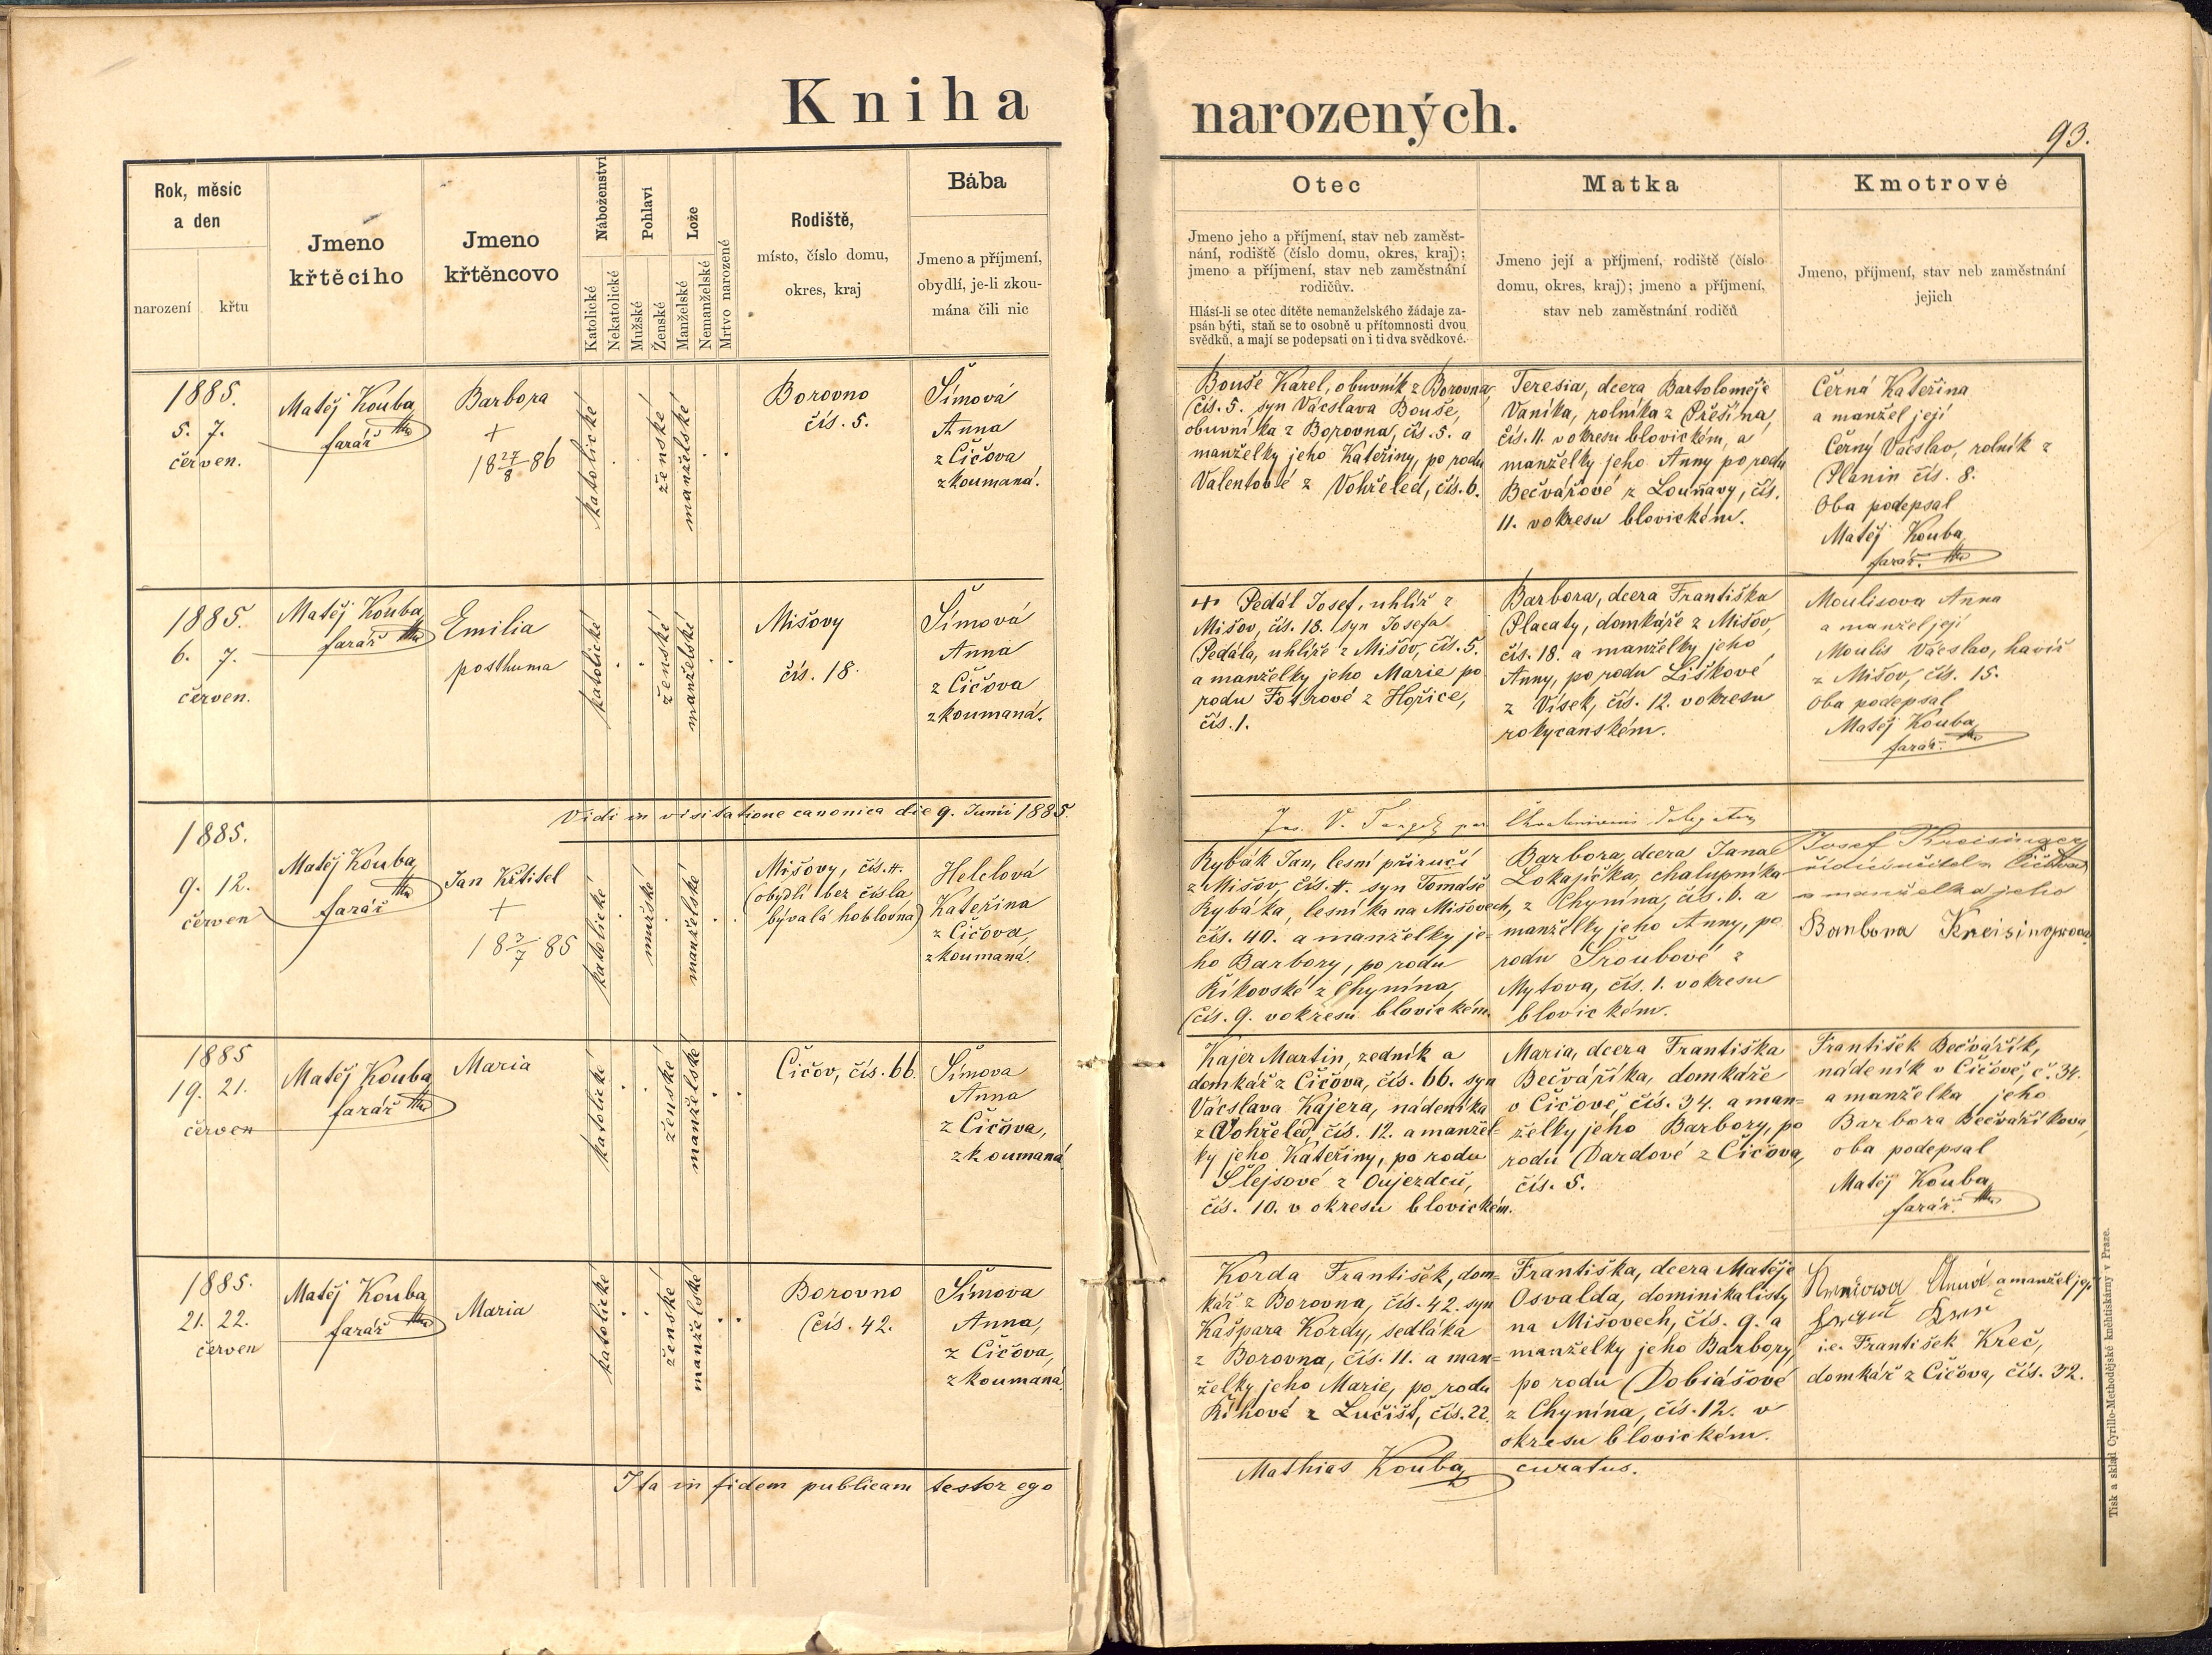 Kniha narozených.
93.
Rok, měsíc
a den
narození
křtu
Jmeno
křtěcího
Jmeno
křtěncovo
Náboženství
Katolické
Nekatolické
Pohlaví
Mužské
Ženské
Lože
Manželské
Nemanželské
Mrtvo narozené
Rodiště,
místo, číslo domu,
okres, kraj
Bába
Jmeno a příjmení,
obydlí, je-li zkou-
mána čili nic
Otec
Jmeno jeho a příjmení, stav neb zaměst-
nání, rodiště (číslo domu, okres, kraj);
jmeno a příjmení, stav neb zaměstnání
rodičův.
Hlásí-li se otec dítěte nemanželského žádaje za-
psán býti, staň se to osobně u přítomnosti dvou
svědků, a mají se podepsati on i ti dva svědkové.
Matka
Jmeno její a příjmení, rodiště (číslo
domu, okres, kraj); jmeno a příjmení,
stav neb zaměstnání rodičů
Kmotrové
Jmeno, příjmení, stav neb zaměstnání
jejich
1885.
5. 7.
červen.
Matěj Kouba
farář
Barbora
+
18 27/8 86
katolické
ženské
manželské
Borovno
čís. 5.
Šimová
Anna
z Čičova
zkoumaná.
Bouše Karel, obuvník z Borovna
čís. 5. syn Vácslava Bouše,
obuvníka z Borovna, čís. 5. a
manželky jeho Kateřiny, po rodu
Valentové z Vohřeled, čís. 6.
Teresia, dcera Bartoloměje
Vaníka, rolníka z Přešína,
čís. 11. v okresu blovickém, a
manželky jeho Anny po rodu
Bečvářové z Louňavy, čís.
11. v okresu blovickém.
Černá Kateřina
a manžel její
Černý Vácslav, rolník z
Planin čís. 8.
Oba podepsal
Matěj Kouba
farář.
1885.
6. 7.
červen.
Matěj Kouba
farář
Emilia
posthuma
katolické
ženské
manželské
Mišovy
čís. 18.
Šimová
Anna
z Čičova
zkoumaná.
+ Pedál Josef, uhlíř z
Mišov, čís. 18. syn Josefa
Pedála, uhlíře z Mišov, čís. 5.
a manželky jeho Marie po
rodu Fotrové z Hořice,
čís. 1.
Barbora, dcera Františka
Placaty, domkáře z Mišov,
čís. 18. a manželky jeho
Anny, po rodu Liškové
z Vísek, čís. 12. v okresu
rokycanském.
Moulisova Anna
a manžel její
Moulis Vácslav, havíř
z Mišov, čís. 15.
Oba podepsal
Matěj Kouba
farář.
Vidi in visitatione canonica die 9. Junii 1885.
1885.
9. 12.
červen
Matěj Kouba
farář
Jan Křtitel
+
18 3/7 85
katolické
mužské
manželské
Mišovy, čís. #.
(obydlí bez čísla
bývalá hoblovna)
Helclová
Kateřina
z Čičova,
zkoumaná.
Rybák Jan, lesní příručí
z Mišov, čís. #. syn Tomáše
Rybáka, lesníka na Mišovech,
čís. 40. a manželky je=
ho Barbory, po rodu
Říkovské z Chynína,
čís. 9. v okresu blovickém.
Barbora, dcera Jana
Lokajíčka, chalupníka
z Chynína, čís. 6. a
manželky jeho Anny, po
rodu Šroubové z
Mytova, čís. 1. v okresu
blovickém.
Josef Kreisinger
řídící učitel v Čičově
a manželka jeho
Barbora Kreisingrova
1885
19. 21.
červen
Matěj Kouba
farář
Maria
katolické
ženské
manželské
Čičov, čís. 66.
Šimova
Anna
z Čičova,
zkoumaná
Kajer Martin, zedník a
domkář z Čičova, čís. 66. syn
Vácslava Kajera, nádeníka
z Vohřeled, čís. 12. a manžel=
ky jeho Kateřiny, po rodu
Šlejsové z Oujezdců,
čís. 10. v okresu blovickém.
Maria, dcera Františka
Bečváříka, domkáře
v Čičově, čís. 34. a man=
želky jeho Barbory, po
rodu Dardové z Čičova,
čís. 5.
František Bečvářík,
nádeník v Čičově, č. 34.
a manželka jeho
Barbora Bečváříkova,
oba podepsal
Matěj Kouba
farář.
1885.
21. 22.
červen
Matěj Kouba
farář
Maria
katolické
ženské
manželské
Borovno
čís. 42.
Šimova
Anna,
z Čičova,
zkoumaná.
Korda František, dom=
kář z Borovna, čís. 42. syn
Kašpara Kordy, sedláka
z Borovna, čís. 11. a man=
želky jeho Marie, po rodu
Říhové z Lučišť, čís. 22.
Františka, dcera Matěje
Osvalda, dominikalisty
na Mišovech, čís. 9. a
manželky jeho Barbory,
po rodu Dobiášové
z Chynína, čís. 12. v
okresu blovickém.
a manžel její
i.e. František Kreč,
domkář z Čičova, čís. 32.
Ita in fidem publicam testor ego Mathias Kouba curatus.
Tisk a sklad Cyrillo-Methodějské knehtiskárny v Praze.